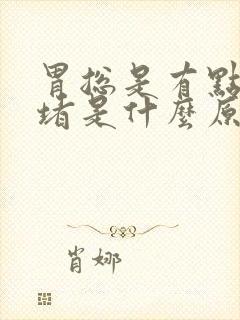 胃總是有點
堵是什麼原
肖娜